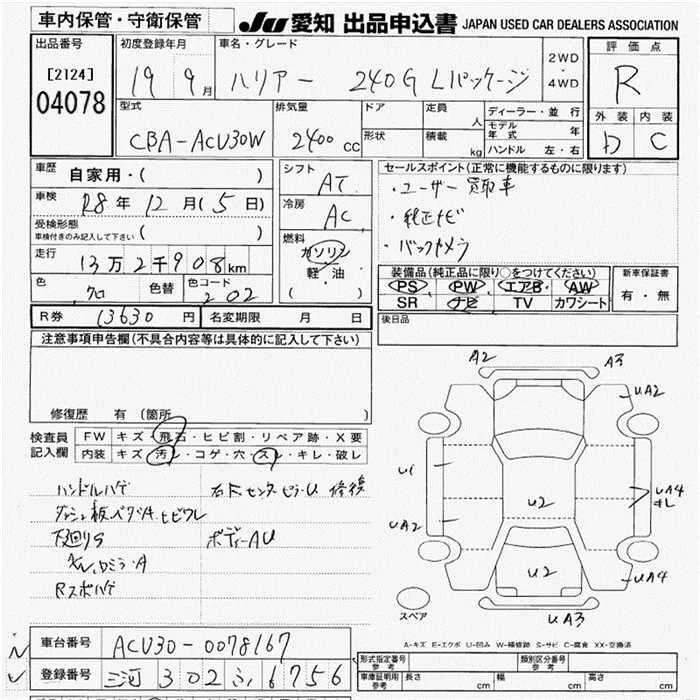 車内保管・守衛保管
JU 愛知 出品申込書 JAPAN USED CAR DEALERS ASSOCIATION
出品番号
[2124]
04078
初度登録年月
19 9月
車名・グレード
ハリアー 240G Lパッケージ
2WD
・
4WD
評価点
R
外装 内装
D C
型式
CBA-ACU30W
排気量
2400 cc
ドア
形状
定員 人
積載 kg
ディーラー・並行
モデル年式 年
ハンドル 左・右
車歴
自家用・( )
車検
R8年 12月(5日)
受検形態
車検付きのみ記入して下さい ( )
走行
13万2千908km
色
クロ
色替
色コード
202
シフト
AT
冷房
AC
燃料
ガソリン
軽・油
( )
セールスポイント(正常に機能するものに限ります)
・ユーザー買取車
・純正ナビ
・バックカメラ
装備品(純正品に限り○をつけてください)
PS PW エアB AW
SR ナビ TV カワシート
新車保証書
有・無
R券 13630円
名変期限 月 日
後日品
注意事項申告欄(不具合内容等は具体的に記入して下さい)
修復歴 有(箇所 )
検査員
記入欄
FW キズ・飛石・ヒビ割・リペア跡・X要
内装 キズ・汚レ・コゲ・穴・スレ・キレ・破レ
ハンドルハゲ
右Fセンターピラー U 修復
ダッシュ板ベタA.ヒビワレ
下廻りS
ボディーAU
ドミラーA
Rスポハゲ
A2
A3
UA2
U1
U2
UA4
キレ
UA2
U2
UA4
UA3
スペア
A-キズ E-エクボ U-凹み W-補修跡 S-サビ C-腐食 XX-交換済
車台番号
ACU30-0078167
登録番号
三河 302 ふ 6756
形式指定番号
参考
類別区分番号
参考
車庫証明用
参考
長さ cm
幅 cm
高さ cm